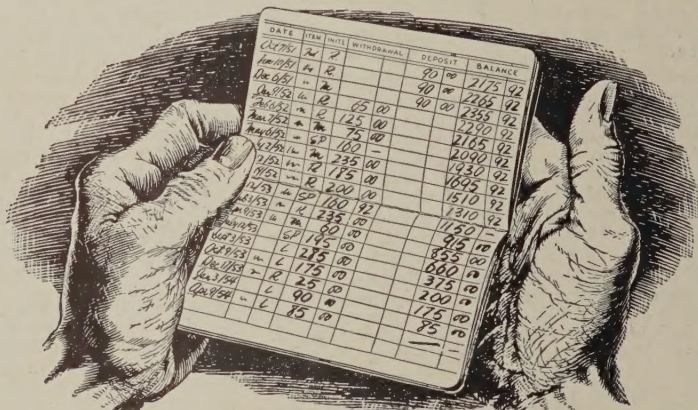 DATE ITEM INITS WITHDRAWAL DEPOSIT BALANCE
Oct 7/51 R 90 00 2175 92
R 90 00 2265 92
Dec 6/51 " m 90 00 2355 92
Jan 9/52 R 65 00 2290 92
Feb 6/52 " R 125 00 2165 92
Mar 7/52 " m 75 00 2090 92
May 6/52 " SP 160 — 1930 92
m 235 00 1695 92
R 185 00 1510 92
R 200 00 1310 92
SP 160 92 1150 —
R 235 00 915 00
m 60 00 855 00
SP 195 00 660 00
Sept 3/53 L 285 00 375 00
Oct 9/53 L 175 00 200 00
Dec 11/53 R 25 00 175 00
Jan 2/54 " L 90 00 85 00
Apr 9/54 " L 85 00 — —